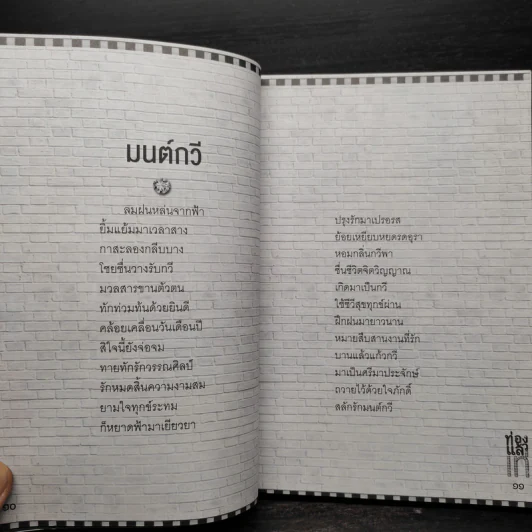 มนต์กวี
ลมฝนหล่นจากฟ้า
ยิ้มแย้มมาเวลาสาง
กาสะลองกลีบบาง
โชยชื่นวางรับกวี
มวลสารขานตัวตน
ทักท่วมท้นด้วยยินดี
คล้อยเคลื่อนวันเดือนปี
สีใจนี้ยังจ่อจม
ทายทักรักวรรณศิลป์
รักหมดสิ้นความงามสม
ยามใจทุกข์ระทม
ก็หยาดฟ้ามาเยียวยา
๑๐
ปรุงรักมาเปรอรส
ย้อยเหยียบหยดรดอุรา
หอมกลิ่นกวีพา
ชื่นชีวิตจิตวิญญาณ
เกิดมาเป็นกวี
ใช้ชีวีสุขทุกข์ผ่าน
ฝึกฝนมายาวนาน
หมายสืบสานงานที่รัก
บานแล้วแก้วกวี
มาเป็นศรีมาประจักษ์
ถวายไว้ด้วยใจภักดิ์
สลักรักมนต์กวี
ท่อง
แล้ว
๑๑